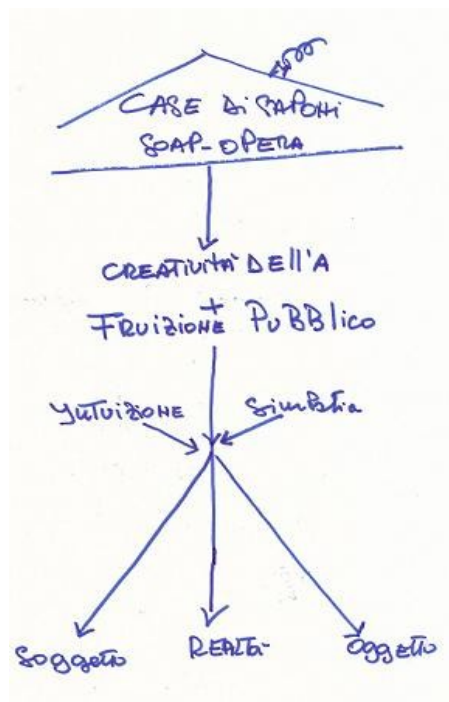 CASE Di SAPONi
SOAP-OPERA
CREATIVITÀ DEll'A
+
FRUIZIONE PUBBlico
INTUIZIONE SimPatia
Soggetto REALTà Oggetto